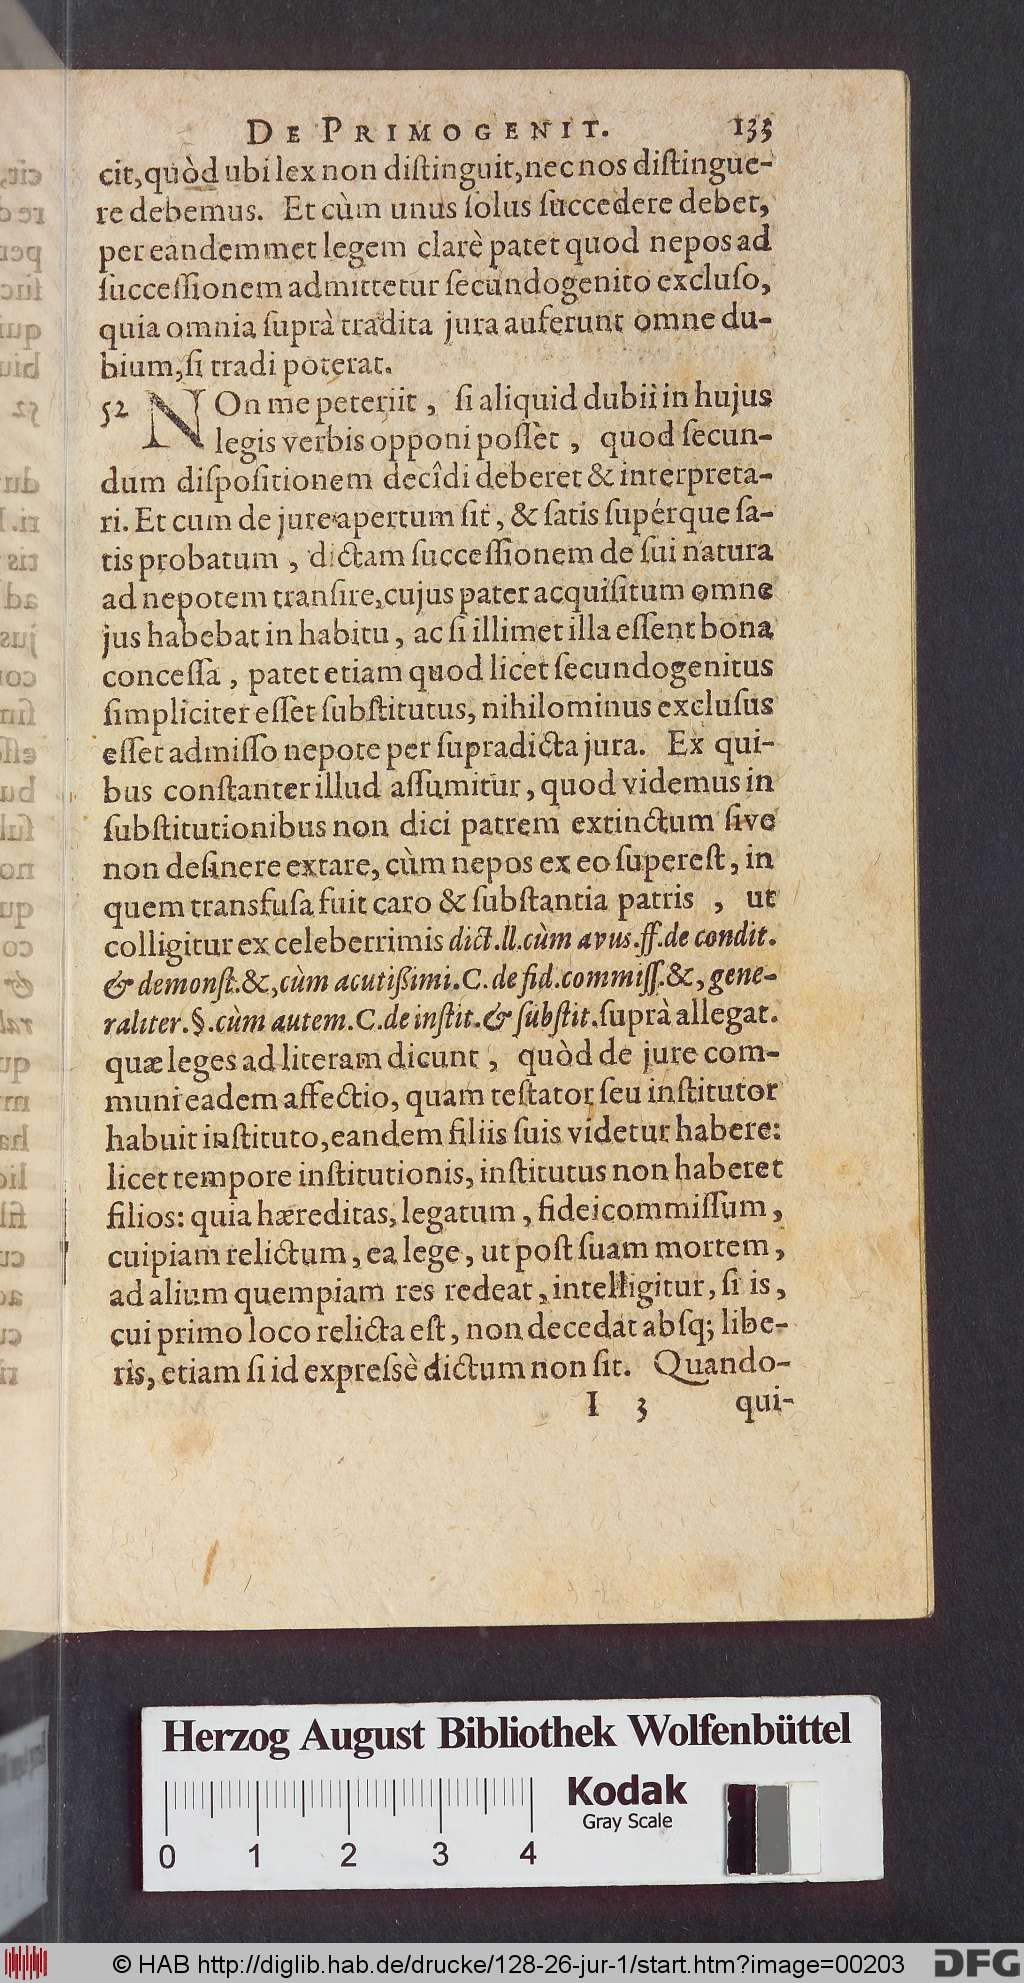 DE PRIMOGENIT. 133
cit, quòd ubi lex non distinguit, nec nos distingue-
re debemus. Et cùm unus solus succedere debet,
per eandemmet legem clarè patet quod nepos ad
successionem admittetur secundogenito excluso,
quia omnia suprà tradita jura auferunt omne du-
bium, si tradi poterat.
52 NOn me peteriit, si aliquid dubii in hujus
legis verbis opponi possèt, quod secun-
dum dispositionem decîdi deberet & interpreta-
ri. Et cum de jure apertum sit, & satis supérque sa-
tis probatum, dictam successionem de sui natura
ad nepotem transire, cujus pater acquisitum omne
jus habebat in habitu, ac si illimet illa essent bona
concessa, patet etiam quod licet secundogenitus
simpliciter esset substitutus, nihilominus exclusus
esset admisso nepote per supradicta jura. Ex qui-
bus constanter illud assumitur, quod videmus in
substitutionibus non dici patrem extinctum sive
non desinere extare, cùm nepos ex eo superest, in
quem transfusa fuit caro & substantia patris, ut
colligitur ex celeberrimis dict. ll. cùm avus. ff. de condit.
& demonst. &, cùm acutißimi. C. de fid. commiss. &, gene-
raliter. §. cùm autem. C. de instit. & substit. suprà allegat.
quæ leges ad literam dicunt, quòd de jure com-
muni eadem affectio, quam testator seu institutor
habuit instituto, eandem filiis suis videtur habere:
licet tempore institutionis, institutus non haberet
filios: quia hæreditas, legatum, fideicommissum,
cuipiam relictum, ea lege, ut post suam mortem,
ad alium quempiam res redeat, intelligitur, si is,
cui primo loco relicta est, non decedat absq; libe-
ris, etiam si id expressè dictum non sit. Quando-
I 3 qui-
Herzog August Bibliothek Wolfenbüttel
Kodak
Gray Scale
0 1 2 3 4
© HAB http://diglib.hab.de/drucke/128-26-jur-1/start.htm?image=00203
DFG